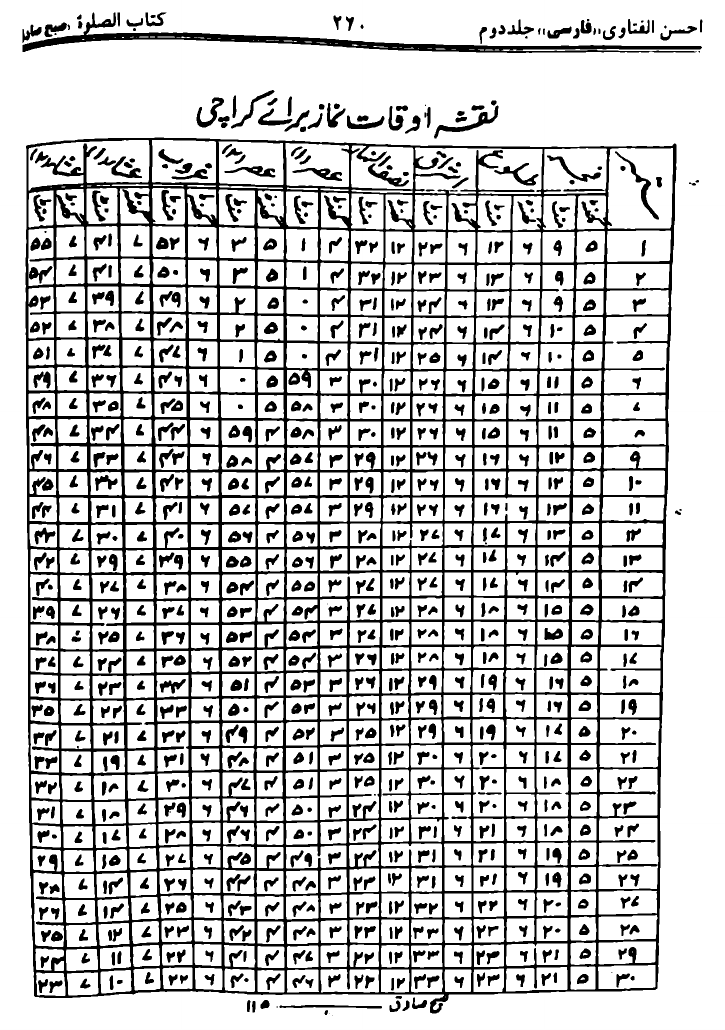 احسن الفتاوی ،،فارسی،، جلد دوم ۲۶۰ کتاب الصلوة ،صبح صادق
نقشہ اوقات نماز برائے کراچی
ستمبر فجر طلوع اشراق نصف النہار عصر(۱) عصر(۲) غروب عشاء(۱) عشاء(۲)
گھنٹہ منٹ گھنٹہ منٹ گھنٹہ منٹ گھنٹہ منٹ گھنٹہ منٹ گھنٹہ منٹ گھنٹہ منٹ گھنٹہ منٹ گھنٹہ منٹ
۱ ۵ ۹ ۶ ۱۲ ۶ ۲۳ ۱۲ ۳۲ ۴ ۱ ۵ ۳ ۶ ۵۲ ۷ ۴۱ ۷ ۵۵
۲ ۵ ۹ ۶ ۱۳ ۶ ۲۳ ۱۲ ۳۲ ۴ ۱ ۵ ۳ ۶ ۵۰ ۷ ۴۱ ۷ ۵۴
۳ ۵ ۹ ۶ ۱۳ ۶ ۲۴ ۱۲ ۳۱ ۴ ۰ ۵ ۲ ۶ ۴۹ ۷ ۳۹ ۷ ۵۳
۴ ۵ ۱۰ ۶ ۱۴ ۶ ۲۴ ۱۲ ۳۱ ۴ ۰ ۵ ۲ ۶ ۴۸ ۷ ۳۸ ۷ ۵۲
۵ ۵ ۱۰ ۶ ۱۴ ۶ ۲۵ ۱۲ ۳۱ ۴ ۰ ۵ ۱ ۶ ۴۷ ۷ ۳۷ ۷ ۵۱
۶ ۵ ۱۱ ۶ ۱۵ ۶ ۲۶ ۱۲ ۳۰ ۳ ۵۹ ۵ ۰ ۶ ۴۶ ۷ ۳۶ ۷ ۴۹
۷ ۵ ۱۱ ۶ ۱۵ ۶ ۲۶ ۱۲ ۳۰ ۳ ۵۸ ۵ ۰ ۶ ۴۵ ۷ ۳۵ ۷ ۴۸
۸ ۵ ۱۱ ۶ ۱۵ ۶ ۲۶ ۱۲ ۳۰ ۳ ۵۸ ۴ ۵۹ ۶ ۴۴ ۷ ۳۴ ۷ ۴۸
۹ ۵ ۱۲ ۶ ۱۶ ۶ ۲۶ ۱۲ ۲۹ ۳ ۵۷ ۴ ۵۸ ۶ ۴۳ ۷ ۳۳ ۷ ۴۶
۱۰ ۵ ۱۲ ۶ ۱۶ ۶ ۲۶ ۱۲ ۲۹ ۳ ۵۷ ۴ ۵۷ ۶ ۴۲ ۷ ۳۲ ۷ ۴۵
۱۱ ۵ ۱۳ ۶ ۱۶ ۶ ۲۶ ۱۲ ۲۹ ۳ ۵۷ ۴ ۵۷ ۶ ۴۱ ۷ ۳۱ ۷ ۴۴
۱۲ ۵ ۱۳ ۶ ۱۷ ۶ ۲۷ ۱۲ ۲۸ ۳ ۵۶ ۴ ۵۶ ۶ ۴۰ ۷ ۳۰ ۷ ۴۳
۱۳ ۵ ۱۴ ۶ ۱۷ ۶ ۲۷ ۱۲ ۲۸ ۳ ۵۶ ۴ ۵۵ ۶ ۳۹ ۷ ۲۹ ۷ ۴۲
۱۴ ۵ ۱۴ ۶ ۱۷ ۶ ۲۷ ۱۲ ۲۷ ۳ ۵۵ ۴ ۵۴ ۶ ۳۸ ۷ ۲۷ ۷ ۴۰
۱۵ ۵ ۱۵ ۶ ۱۸ ۶ ۲۸ ۱۲ ۲۷ ۳ ۵۴ ۴ ۵۳ ۶ ۳۷ ۷ ۲۶ ۷ ۳۹
۱۶ ۵ ۱۵ ۶ ۱۸ ۶ ۲۸ ۱۲ ۲۷ ۳ ۵۴ ۴ ۵۳ ۶ ۳۶ ۷ ۲۵ ۷ ۳۸
۱۷ ۵ ۱۵ ۶ ۱۸ ۶ ۲۸ ۱۲ ۲۶ ۳ ۵۴ ۴ ۵۲ ۶ ۳۵ ۷ ۲۴ ۷ ۳۷
۱۸ ۵ ۱۶ ۶ ۱۹ ۶ ۲۹ ۱۲ ۲۶ ۳ ۵۳ ۴ ۵۱ ۶ ۳۴ ۷ ۲۳ ۷ ۳۶
۱۹ ۵ ۱۶ ۶ ۱۹ ۶ ۲۹ ۱۲ ۲۶ ۳ ۵۳ ۴ ۵۰ ۶ ۳۳ ۷ ۲۲ ۷ ۳۵
۲۰ ۵ ۱۷ ۶ ۱۹ ۶ ۲۹ ۱۲ ۲۵ ۳ ۵۲ ۴ ۴۹ ۶ ۳۲ ۷ ۲۱ ۷ ۳۴
۲۱ ۵ ۱۷ ۶ ۲۰ ۶ ۳۰ ۱۲ ۲۵ ۳ ۵۱ ۴ ۴۸ ۶ ۳۱ ۷ ۱۹ ۷ ۳۳
۲۲ ۵ ۱۸ ۶ ۲۰ ۶ ۳۰ ۱۲ ۲۵ ۳ ۵۱ ۴ ۴۷ ۶ ۳۰ ۷ ۱۸ ۷ ۳۲
۲۳ ۵ ۱۸ ۶ ۲۰ ۶ ۳۰ ۱۲ ۲۴ ۳ ۵۰ ۴ ۴۶ ۶ ۳۹ ۷ ۱۸ ۷ ۳۱
۲۴ ۵ ۱۸ ۶ ۲۱ ۶ ۳۱ ۱۲ ۲۴ ۳ ۵۰ ۴ ۴۶ ۶ ۲۸ ۷ ۱۷ ۷ ۳۰
۲۵ ۵ ۱۹ ۶ ۲۱ ۶ ۳۱ ۱۲ ۲۴ ۳ ۴۹ ۴ ۴۵ ۶ ۲۷ ۷ ۱۵ ۷ ۲۹
۲۶ ۵ ۱۹ ۶ ۲۱ ۶ ۳۱ ۱۲ ۲۳ ۳ ۴۸ ۴ ۴۴ ۶ ۲۶ ۷ ۱۴ ۷ ۲۸
۲۷ ۵ ۲۰ ۶ ۲۲ ۶ ۳۲ ۱۲ ۲۳ ۳ ۴۸ ۴ ۴۳ ۶ ۲۵ ۷ ۱۴ ۷ ۲۶
۲۸ ۵ ۲۰ ۶ ۲۳ ۶ ۳۳ ۱۲ ۲۳ ۳ ۴۸ ۴ ۴۲ ۶ ۲۳ ۷ ۱۲ ۷ ۲۵
۲۹ ۵ ۲۱ ۶ ۲۳ ۶ ۳۳ ۱۲ ۲۲ ۳ ۴۷ ۴ ۴۱ ۶ ۲۲ ۷ ۱۱ ۷ ۲۴
۳۰ ۵ ۲۱ ۶ ۲۳ ۶ ۳۳ ۱۲ ۲۲ ۳ ۴۶ ۴ ۴۰ ۶ ۲۲ ۷ ۱۰ ۷ ۲۳
صبح صادق ــــــ ۱۱۵